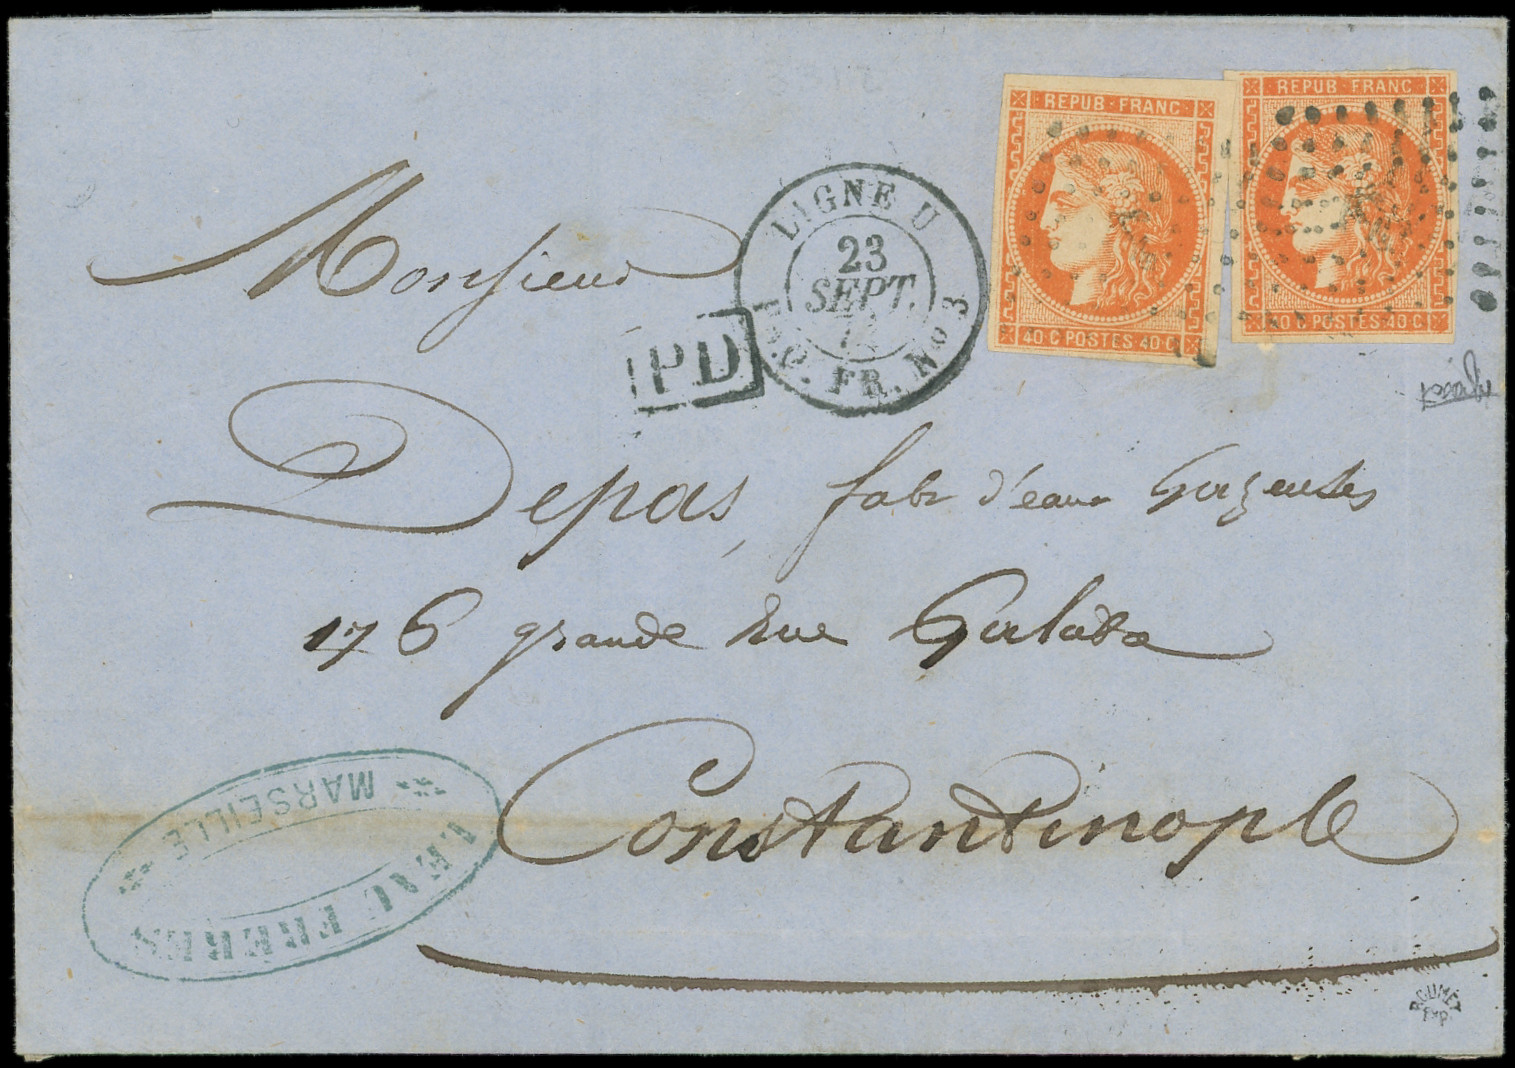 REPUB · FRANC
40 · C POSTES 40 · C
REPUB · FRANC
40 · C POSTES 40 · C
LIGNE U
23
SEPT.
72
P. FR. No 3
PD
Monsieur
Depas, fabt d'eaux Gazeuses
176 grande Rue Galata
Constantinople
FRERES
MARSEILLE
ROUMET
EXP